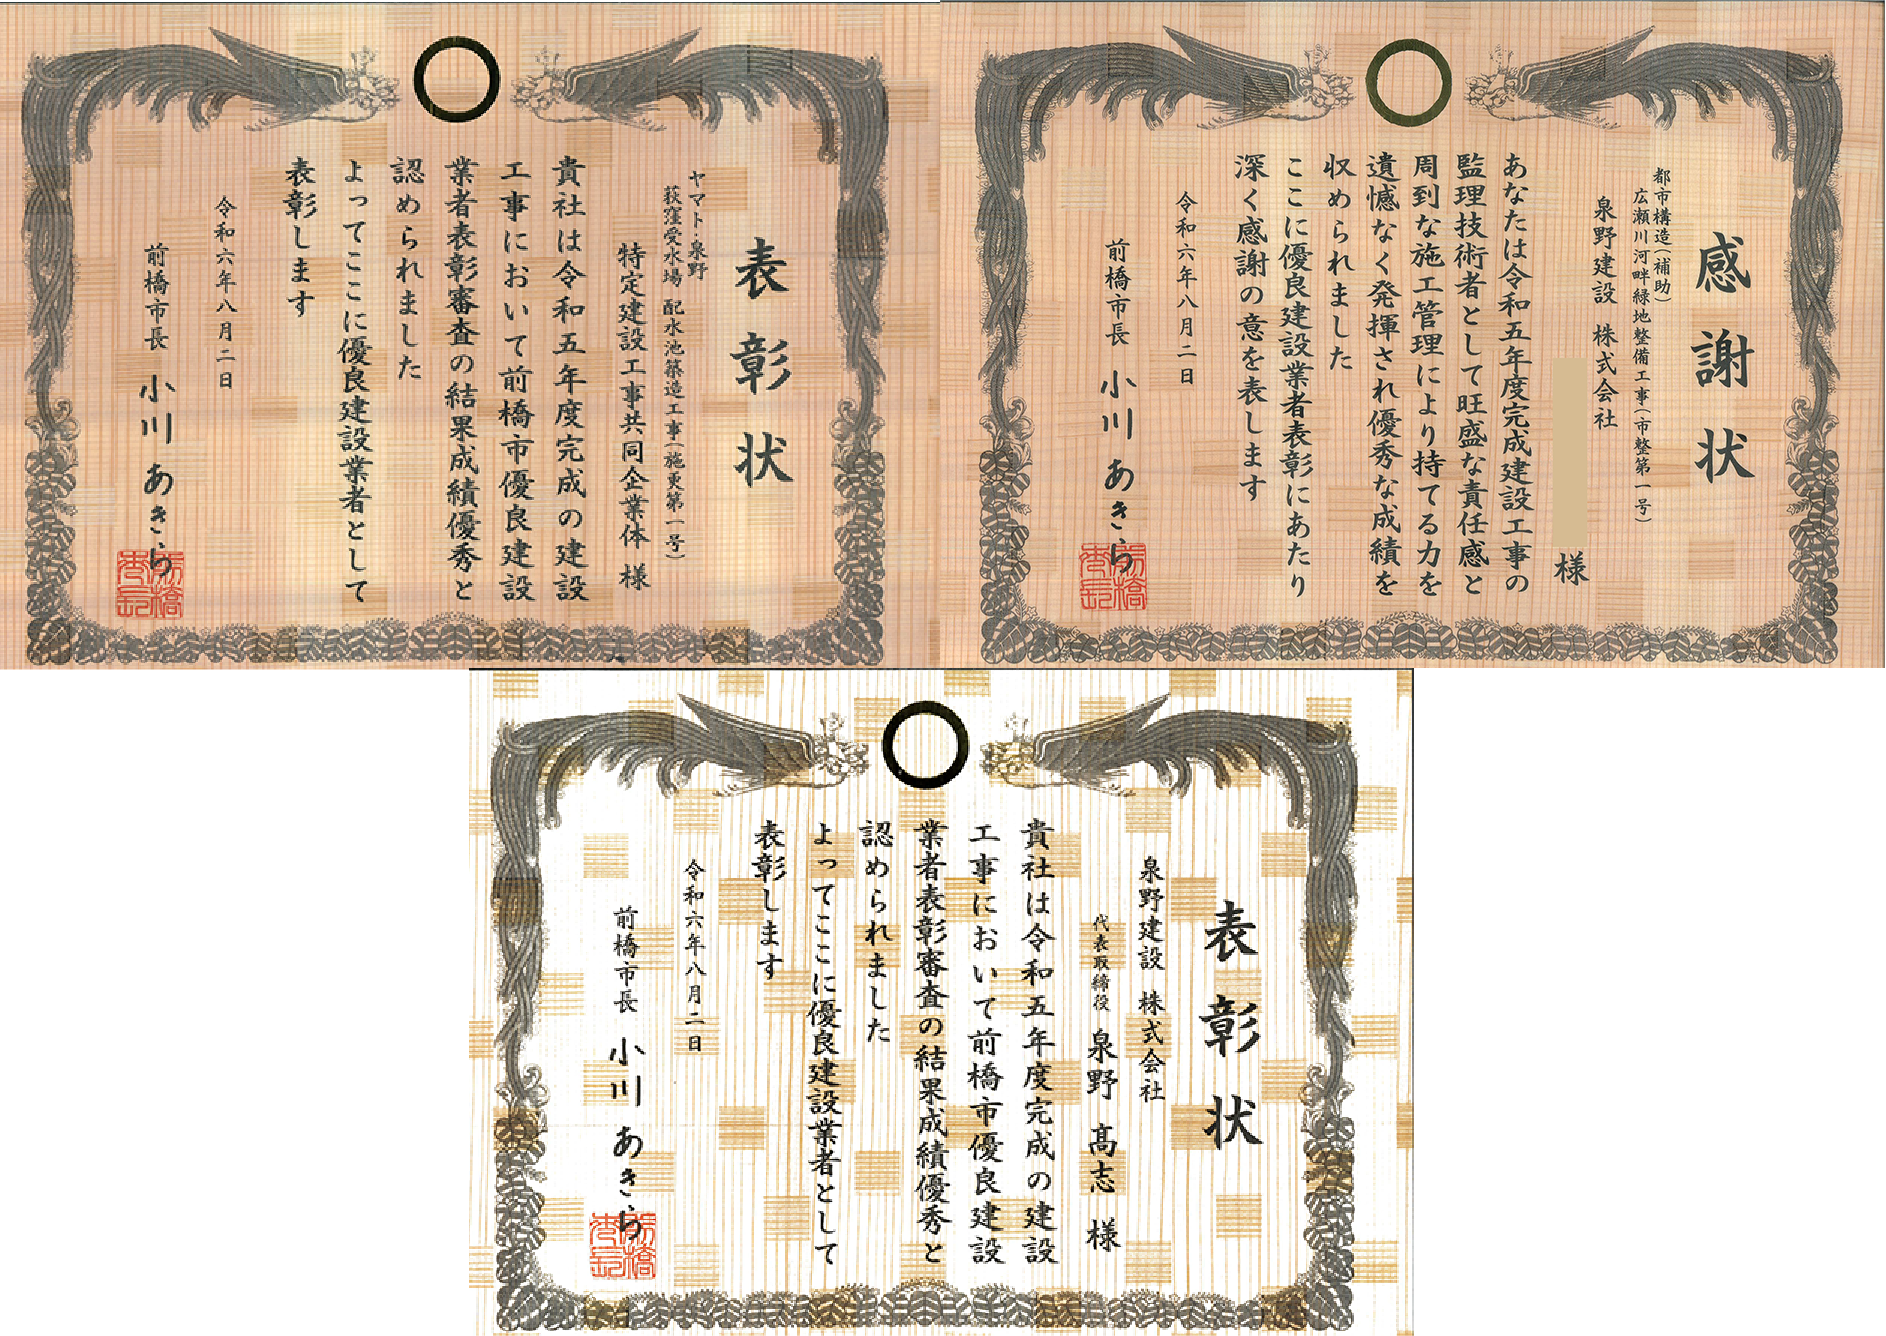 表彰状
ヤマト・泉野
荻窪受水場 配水池築造工事(施更第一号)
特定建設工事共同企業体 様
貴社は令和五年度完成の建設
工事において前橋市優良建設
業者表彰審査の結果成績優秀と
認められました
よってここに優良建設業者として
表彰します
令和六年八月二日
前橋市長 小川あきら
前橋市長
感謝状
都市構造(補助)
広瀬川河畔緑地整備工事(市整第一号)
泉野建設 株式会社
様
あなたは令和五年度完成建設工事の
監理技術者として旺盛な責任感と
周到な施工管理により持てる力を
遺憾なく発揮され優秀な成績を
収められました
ここに優良建設業者表彰にあたり
深く感謝の意を表します
令和六年八月二日
前橋市長 小川あきら
前橋市長
表彰状
泉野建設 株式会社
代表取締役 泉野 髙志 様
貴社は令和五年度完成の建設
工事において前橋市優良建設
業者表彰審査の結果成績優秀と
認められました
よってここに優良建設業者として
表彰します
令和六年八月二日
前橋市長 小川あきら
前橋市長